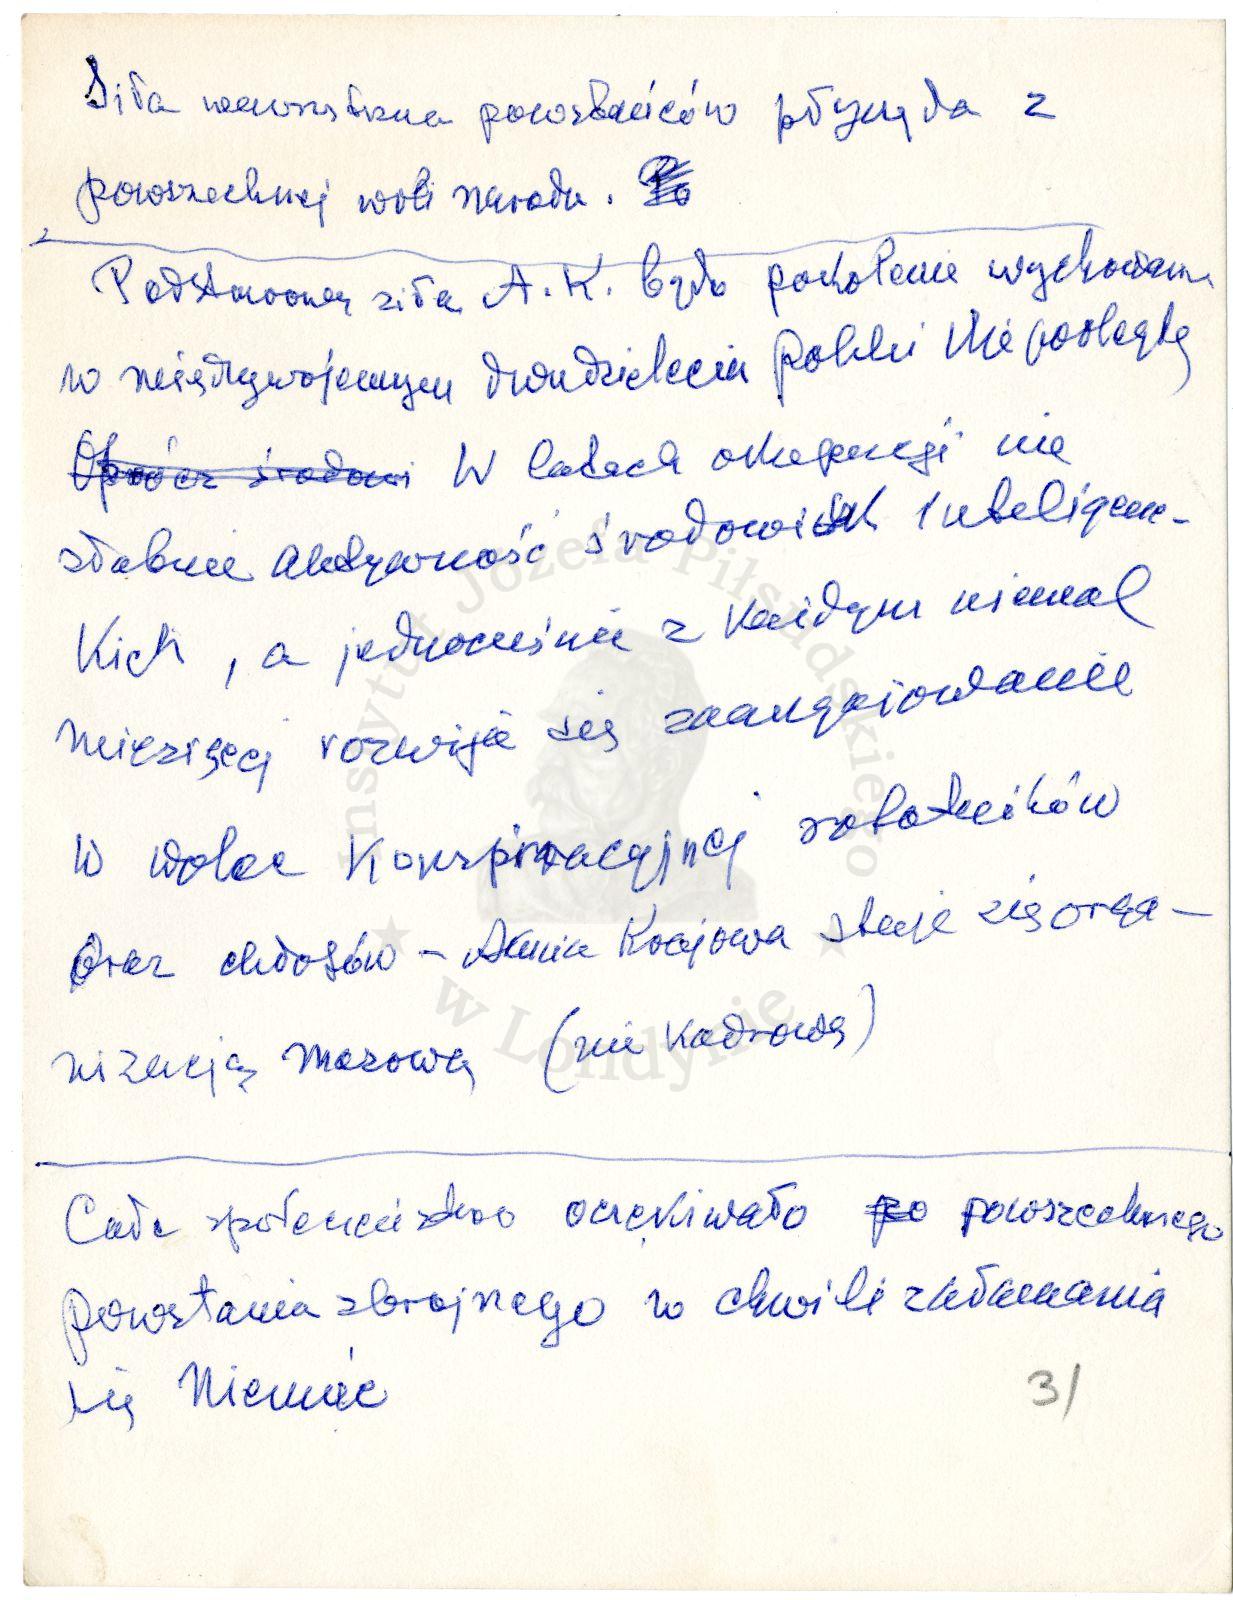 Siła wewnętrzna powstańców płynęła z
powszechnej woli narodu.
Podstawową siłą A.K. było pokolenie wychowane
w międzywojennym dwudziestoleciu Polski Niepodległej
Oprócz środowi W latach okupacji nie
słabnie aktywność środowisk inteligenc-
kich, a jednocześnie z każdym niemal
miesiącej rozwija się zaangażowanie
w walce konspiracyjnej robotników
oraz chłopów – Armia Krajowa staje się orga-
nizacją masową (nie kadrową)
Całe społeczeństwo oczekiwało po powszechnego
powstania zbrojnego w chwili załamania
się Niemiec
3/
Instytut Józefa Piłsudskiego
w Londynie